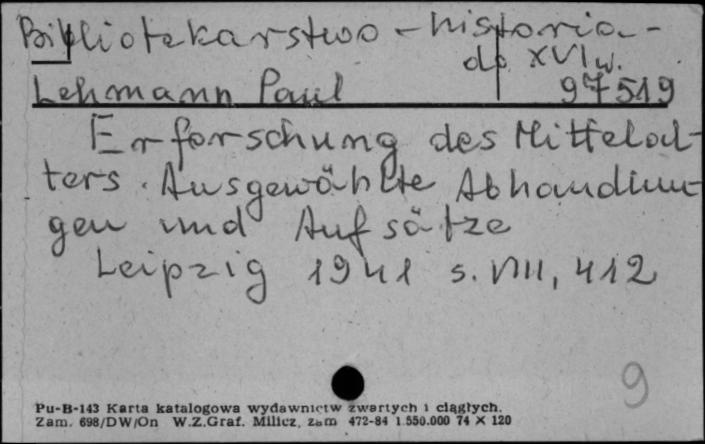 Bibliotekarstwo - historia -
do XVI w.
Lehmann Paul 97519
Erforschung des Mittelal-
ters. Ausgewählte Abhandlun-
gen und Aufsätze
Leipzig 1941 s. VIII, 412
9
Pu-B-143 Karta katalogowa wydawnictw zwartych i ciągłych.
Zam. 698/DW/On W.Z.Graf. Milicz, zam 472-84 1.550.000 74 X 120